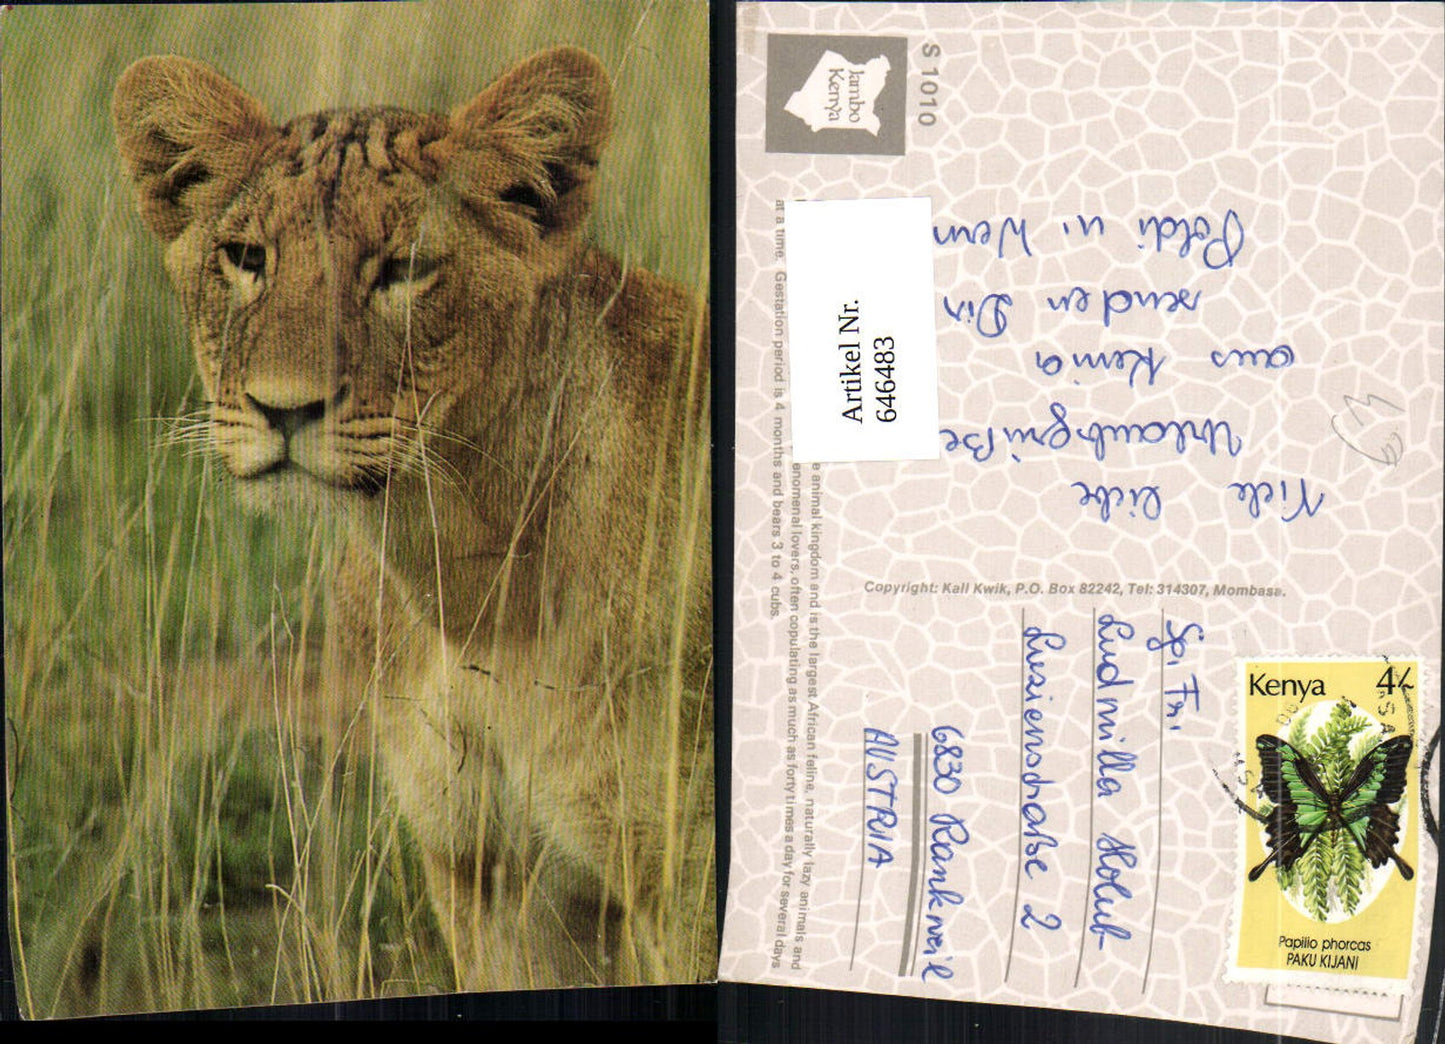 Jambo
Kenya
S 1010
Artikel Nr.
646483
e animal kingdom and is the largest African feline, naturally lazy animals and
enomenal lovers, often copulating as much as forty times a day for several days
at a time. Gestation period is 4 months and bears 3 to 4 cubs.
Viele liebe
Urlaubsgrüße
aus Kenia
senden Dir
Poldi u. Wern
Copyright: Kall Kwik, P.O. Box 82242, Tel: 314307, Mombasa.
Ludmilla Holub
Luzienstraße 2
6830 Rankweil
AUSTRIA
Kenya 4/-
Papilio phorcas
PAKU KIJANI